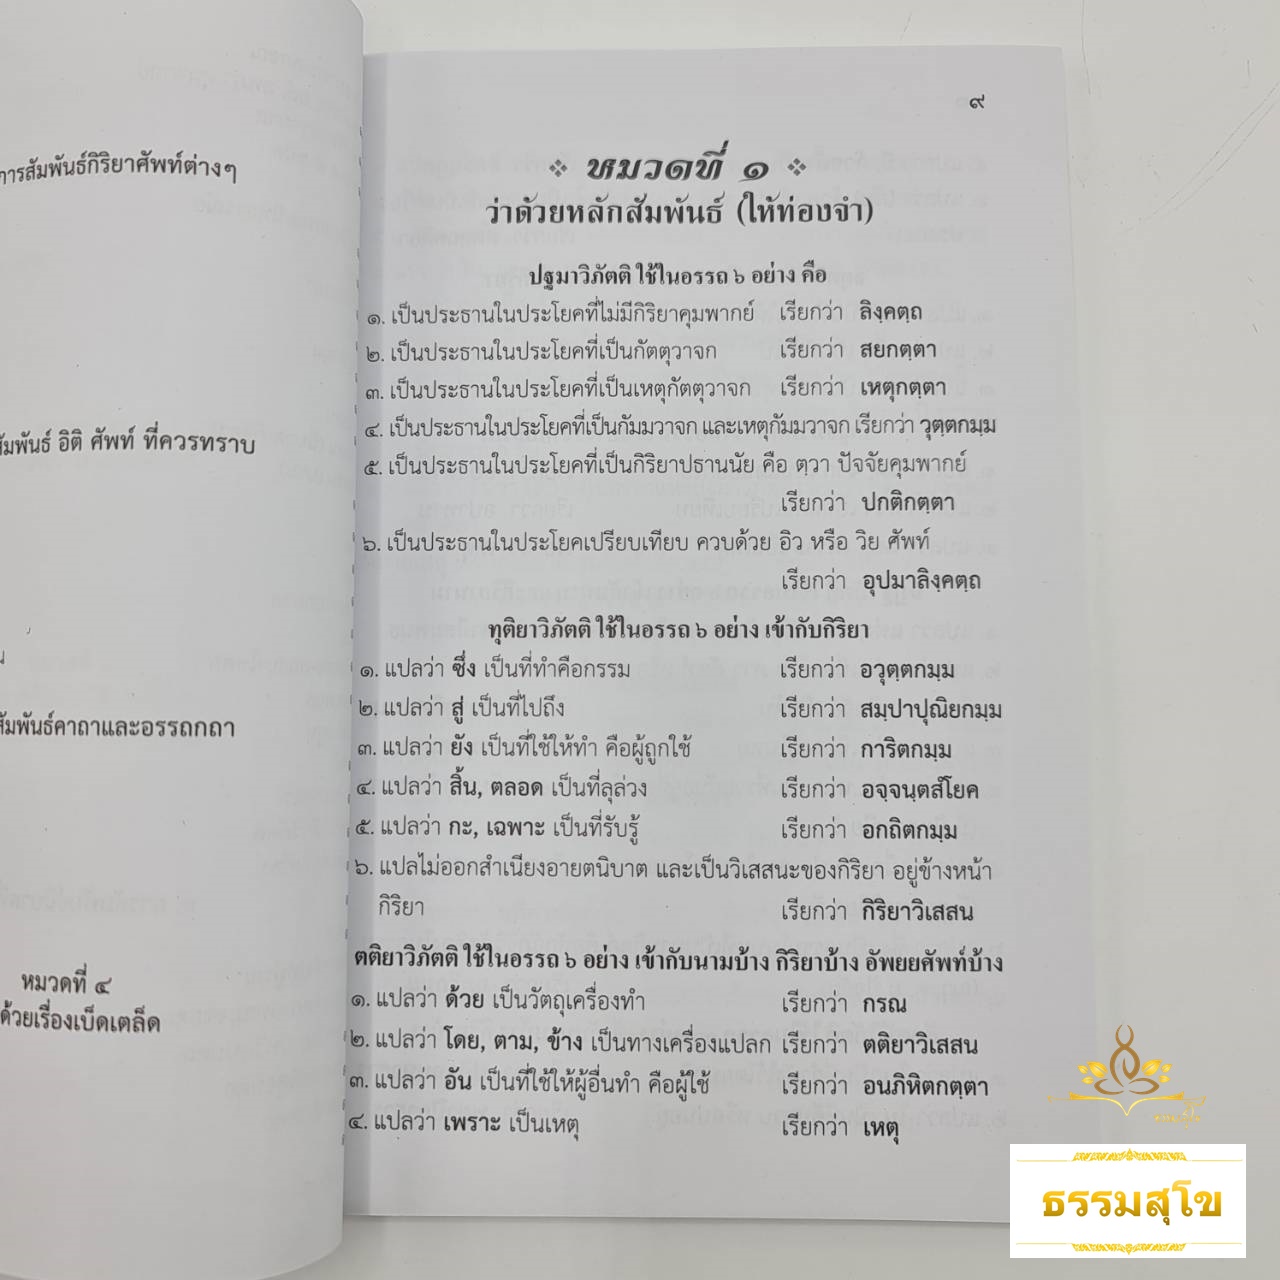 การสัมพันธ์กิริยาศัพท์ต่างๆ
สัมพันธ์ อิติ ศัพท์ ที่ควรทราบ
สัมพันธ์คาถาและอรรถกถา
หมวดที่ ๔
ด้วยเรื่องเบ็ดเตล็ด
๙
หมวดที่ ๑
ว่าด้วยหลักสัมพันธ์ (ให้ท่องจำ)
ปฐมาวิภัตติ ใช้ในอรรถ ๖ อย่าง คือ
๑. เป็นประธานในประโยคที่ไม่มีกิริยาคุมพากย์ เรียกว่า ลิงฺคตฺถ
๒. เป็นประธานในประโยคที่เป็นกัตตุวาจก เรียกว่า สยกตฺตา
๓. เป็นประธานในประโยคที่เป็นเหตุกัตตุวาจก เรียกว่า เหตุกตฺตา
๔. เป็นประธานในประโยคที่เป็นกัมมวาจก และเหตุกัมมวาจก เรียกว่า วุตฺตกมฺม
๕. เป็นประธานในประโยคที่เป็นกิริยาปธานนัย คือ ตฺวา ปัจจัยคุมพากย์
เรียกว่า ปกติกตฺตา
๖. เป็นประธานในประโยคเปรียบเทียบ ควบด้วย อิว หรือ วิย ศัพท์
เรียกว่า อุปมาลิงฺคตฺถ
ทุติยาวิภัตติ ใช้ในอรรถ ๖ อย่าง เข้ากับกิริยา
๑. แปลว่า ซึ่ง เป็นที่ทำคือกรรม เรียกว่า อวุตฺตกมฺม
๒. แปลว่า สู่ เป็นที่ไปถึง เรียกว่า สมฺปาปุณิยกมฺม
๓. แปลว่า ยัง เป็นที่ใช้ให้ทำ คือผู้ถูกใช้ เรียกว่า การิตกมฺม
๔. แปลว่า สิ้น, ตลอด เป็นที่ลุล่วง เรียกว่า อจฺจนฺตสํโยค
๕. แปลว่า กะ, เฉพาะ เป็นที่รับรู้ เรียกว่า อกถิตกมฺม
๖. แปลไม่ออกสำเนียงอายตนิบาต และเป็นวิเสสนะของกิริยา อยู่ข้างหน้า
กิริยา เรียกว่า กิริยาวิเสสน
ตติยาวิภัตติ ใช้ในอรรถ ๖ อย่าง เข้ากับนามบ้าง กิริยาบ้าง อัพยยศัพท์บ้าง
๑. แปลว่า ด้วย เป็นวัตถุเครื่องทำ เรียกว่า กรณ
๒. แปลว่า โดย, ตาม, ข้าง เป็นทางเครื่องแปลก เรียกว่า ตติยาวิเสสน
๓. แปลว่า อัน เป็นที่ใช้ให้ผู้อื่นทำ คือผู้ใช้ เรียกว่า อนภิหิตกตฺตา
๔. แปลว่า เพราะ เป็นเหตุ เรียกว่า เหตุ
ธรรมสุโข